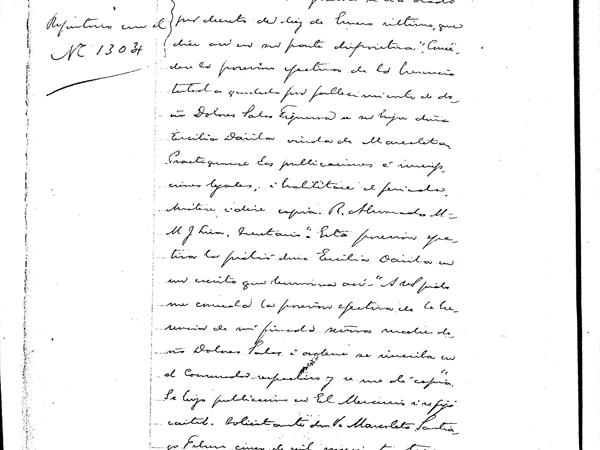 Repertorio con el
Nº 1304
por decreto de diez de Enero último, que
dice así en su parte dispositiva: "Concé-
dese la posesión efectiva de la herencia
testada quedada por fallecimiento de do-
ña Dolores Salas Figueroa a su hija doña
Cecilia Dávila viuda de Marcoleta.
Practíquense las publicaciones é inscrip-
ciones legales, i habilitese el feriado.
Anótese i dése copia. R. Ahumada M=
M J Lira, Secretario". Esta posesión efec-
tiva la pidió doña Cecilia Dávila en
un escrito que termina así: "A US pido
me conceda la posesión efectiva de la he-
rencia de mi finada señora madre do-
ña Dolores Salas i ordene se inscriba en
el Conservador respectivo y se me dé copia".
Se hizo publicacion en El Mercurio i se fijó
cartel. Solicitante don V. Marcoleta Santia-
go Febrero cinco de mil